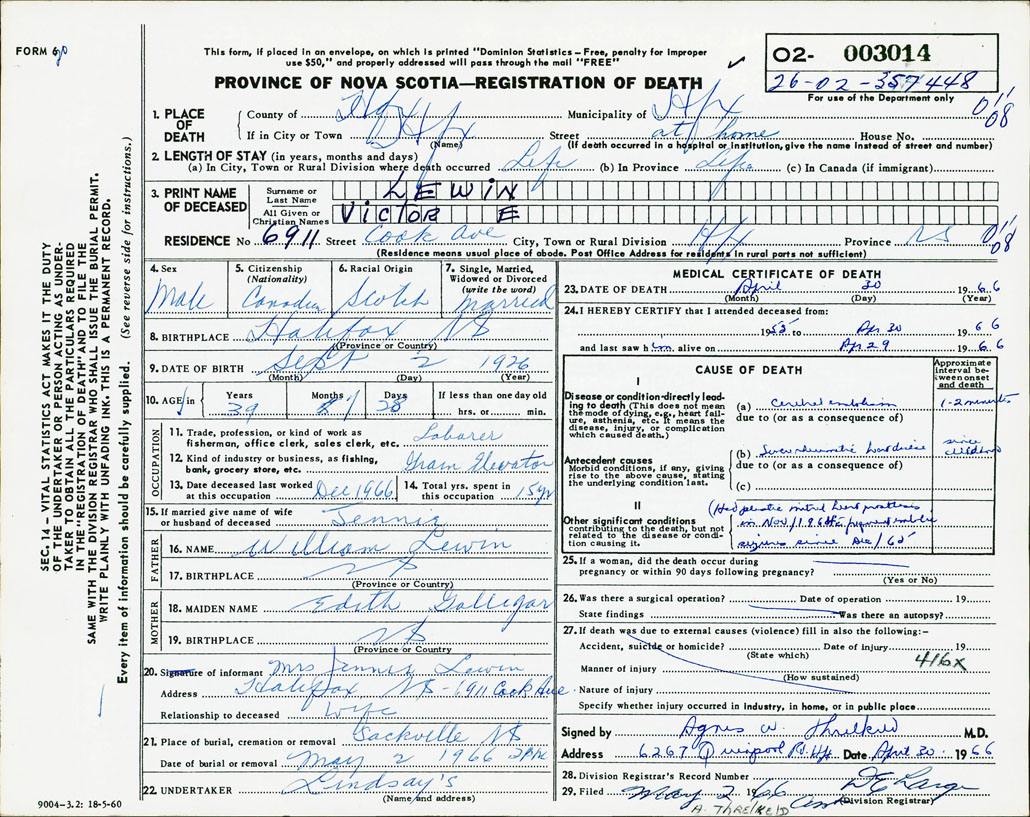 FORM 6
This form, if placed in an envelope, on which is printed "Dominion Statistics – Free, penalty for improper
use $50," and properly addressed will pass through the mail "FREE"
PROVINCE OF NOVA SCOTIA—REGISTRATION OF DEATH
O2- 003014
26-02-357448
For use of the Department only
1. PLACE OF DEATH
County of Hfx Municipality of Hfx 01/08
If in City or Town Hfx Street at home House No.
(Name) (If death occurred in a hospital or institution, give the name instead of street and number)
2. LENGTH OF STAY (in years, months and days)
(a) In City, Town or Rural Division where death occurred Life (b) In Province Life (c) In Canada (if immigrant)
3. PRINT NAME OF DECEASED
Surname or Last Name LEWIN
All Given or Christian Names VICTOR E
RESIDENCE No 6911 Street Cook Ave City, Town or Rural Division Hfx Province NS 01/08
(Residence means usual place of abode. Post Office Address for residents in rural parts not sufficient)
4. Sex Male
5. Citizenship (Nationality) Canadian
6. Racial Origin Scotch
7. Single, Married, Widowed or Divorced (write the word) Married
8. BIRTHPLACE Halifax NS
(Province or Country)
9. DATE OF BIRTH Sept 2 1926
(Month) (Day) (Year)
10. AGE in Years 39 Months Days 28 If less than one day old hrs. or min.
OCCUPATION
11. Trade, profession, or kind of work as
fisherman, office clerk, sales clerk, etc. Laborer
12. Kind of industry or business, as fishing,
bank, grocery store, etc. Grain Elevator
13. Date deceased last worked at this occupation Dec 1966
14. Total yrs. spent in this occupation 15yr
15. If married give name of wife or husband of deceased Jennie
FATHER
16. NAME William Lewin
17. BIRTHPLACE NS
(Province or Country)
MOTHER
18. MAIDEN NAME Edith
19. BIRTHPLACE NS
(Province or Country)
20. Signature of informant Mrs Jennie Lewin
Address Halifax NS - 6911 Cook Ave
Relationship to deceased Wife
21. Place of burial, cremation or removal Sackville NS
Date of burial or removal May 2 1966 2PM
22. UNDERTAKER Lindsay's
(Name and address)
9004–3.2: 18-5-60
MEDICAL CERTIFICATE OF DEATH
23. DATE OF DEATH April 30 1966
(Month) (Day) (Year)
24. I HEREBY CERTIFY that I attended deceased from:
1955 to Apr 30 1966
and last saw him alive on Apr 29 1966
CAUSE OF DEATH
Approximate interval between onset and death
I
Disease or condition directly leading to death (This does not mean
the mode of dying, e.g., heart failure, asthenia, etc. It means the
disease, injury, or complication which caused death.)
(a) Cerebral embolism 1-2 minutes
due to (or as a consequence of)
Antecedent causes
Morbid conditions, if any, giving rise to the above cause, stating
the underlying condition last.
(b) rheumatic heart disease since
due to (or as a consequence of)
(c)
II
Other significant conditions
contributing to the death, but not related to the disease or condition causing it.
(Had mitral
in Nov/1964
since Dec/65
25. If a woman, did the death occur during
pregnancy or within 90 days following pregnancy?
(Yes or No)
26. Was there a surgical operation? Date of operation 19
State findings Was there an autopsy?
27. If death was due to external causes (violence) fill in also the following:–
Accident, suicide or homicide? Date of injury 19
(State which) 416X
Manner of injury
(How sustained)
Nature of injury
Specify whether injury occurred in industry, in home, or in public place
Signed by Agnes W. Threlkeld M.D.
Address 6267 Quinpool Rd. Hfx Date April 30 1966
28. Division Registrar's Record Number
29. Filed May 2 1966 D E Large
(Division Registrar)
A. THRELKELD
SEC. 14 – VITAL STATISTICS ACT MAKES IT THE DUTY
OF THE UNDERTAKER OR PERSON ACTING AS UNDER-
TAKER TO OBTAIN ALL THE PARTICULARS REQUIRED
IN THE "REGISTRATION OF DEATH" AND TO FILE THE
SAME WITH THE DIVISION REGISTRAR WHO SHALL ISSUE THE BURIAL PERMIT.
WRITE PLAINLY WITH UNFADING INK. THIS IS A PERMANENT RECORD.
Every item of information should be carefully supplied. (See reverse side for instructions.)